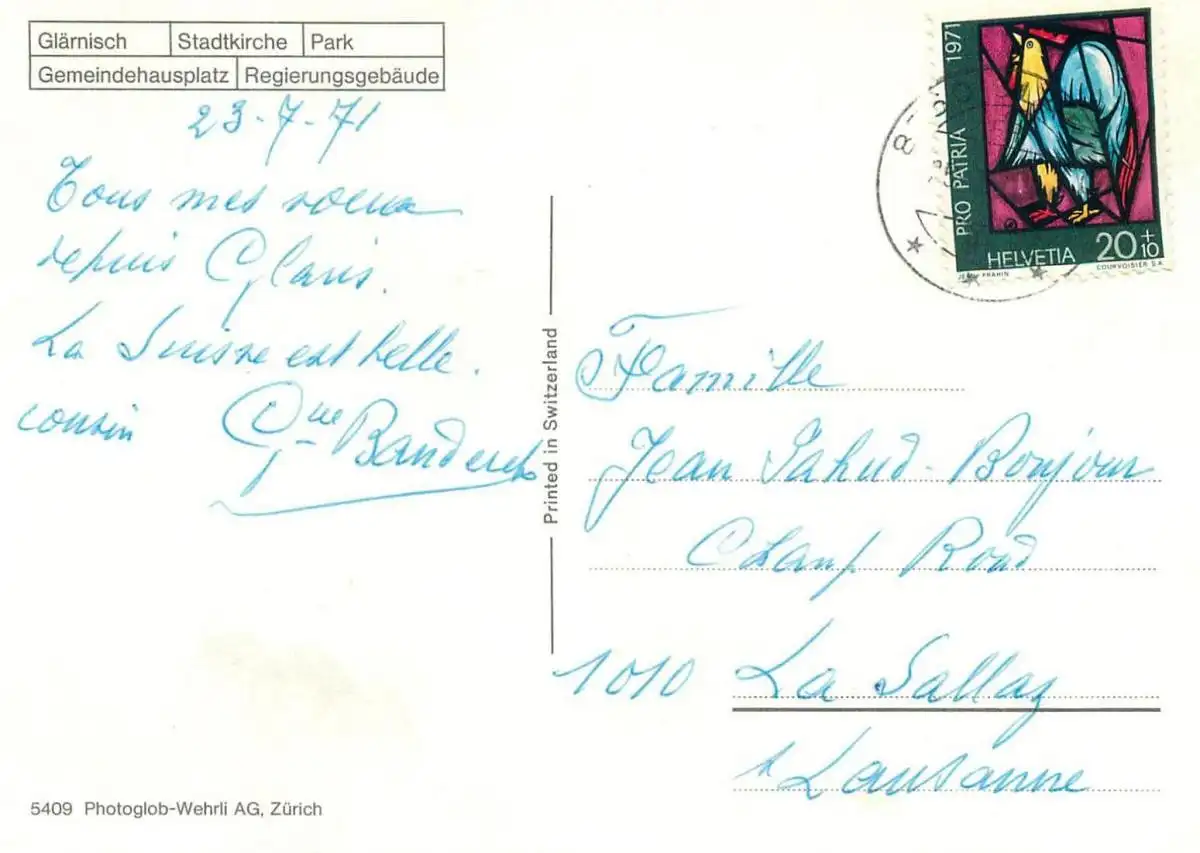 Glärnisch Stadtkirche Park
Gemeindehausplatz Regierungsgebäude
23-7-71
Tous mes voeux
depuis Glaris.
La Suisse est belle.
cousin
PRO PATRIA 1971
HELVETIA 20+10
COURVOISIER S.A.
Printed in Switzerland
Famille
Jean Jahud-Bonjour
Champ Rond
1010 La Sallaz
s Lausanne
5409 Photoglob-Wehrli AG, Zürich